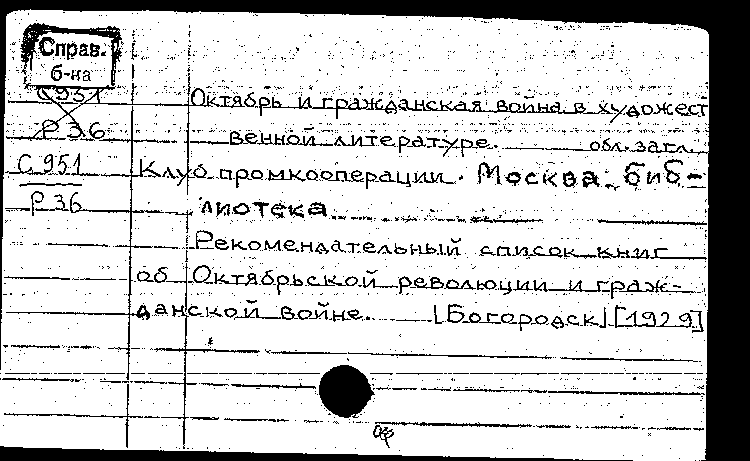 Справ.
б-ка
С951
Р36
Октябрь и гражданская война в художест
венной литературе. обл. загл.
С951
Р36
Клуб промкооперации. Москва. биб-
лиотека
Рекомендательный список книг
об Октябрьской революции и граж-
данской войне. [Богородск] [1929]